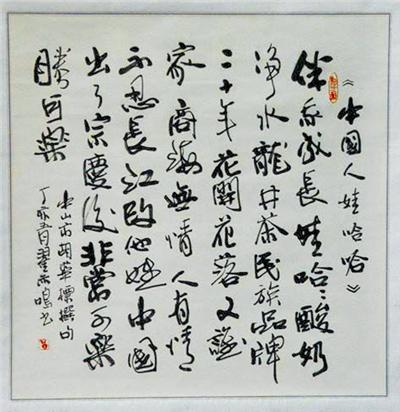 《中國人娃哈哈》
伴我成長娃哈哈酸奶
净水龍井茶民族品牌
二十年花開花落又誰
家商海無情人有情
不忍長江改他姓中國
出了宗慶後非常可樂
勝可樂
中山市胡華標撰句
丁亥書